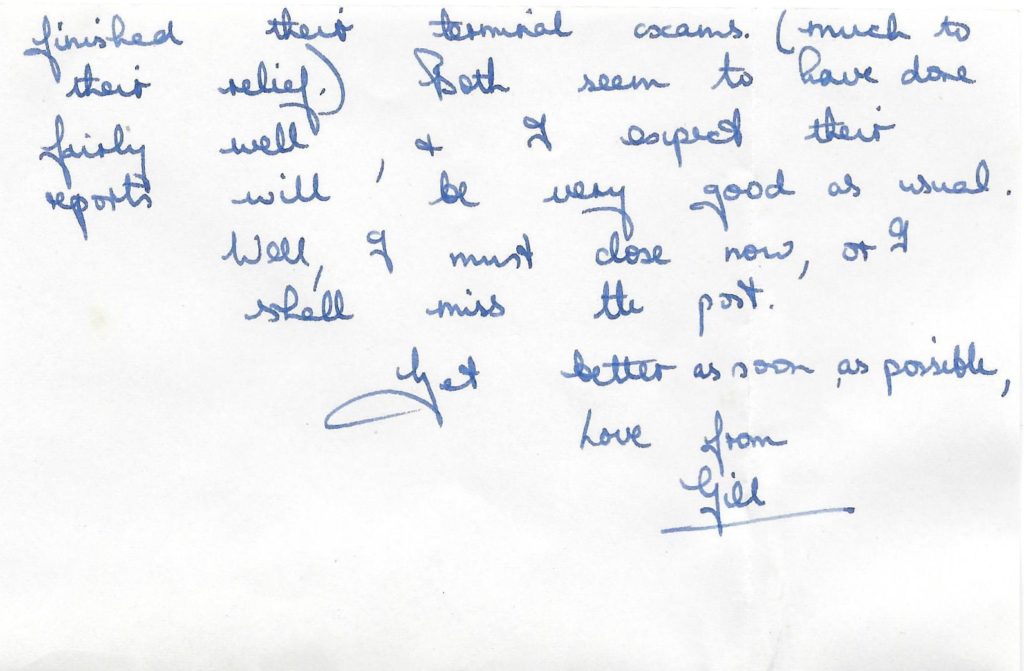 finished their terminal exams. (much to
their relief.) Both seem to have done
fairly well, & I expect their
reports will be very good as usual.
Well, I must close now, or I
shall miss the post.
Get better as soon as possible,
Love from
Gill